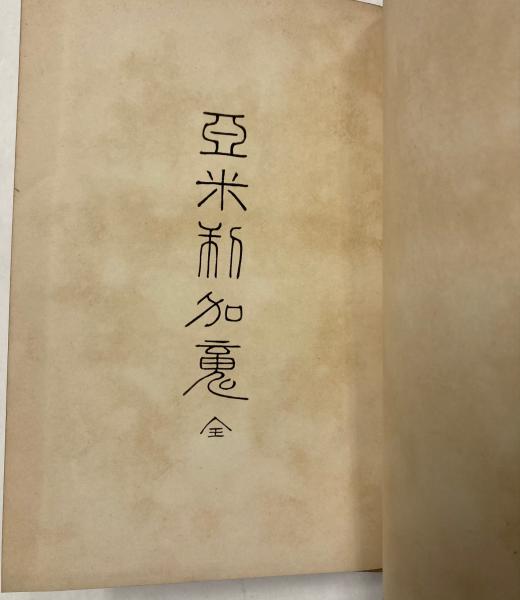 亞米利加
全